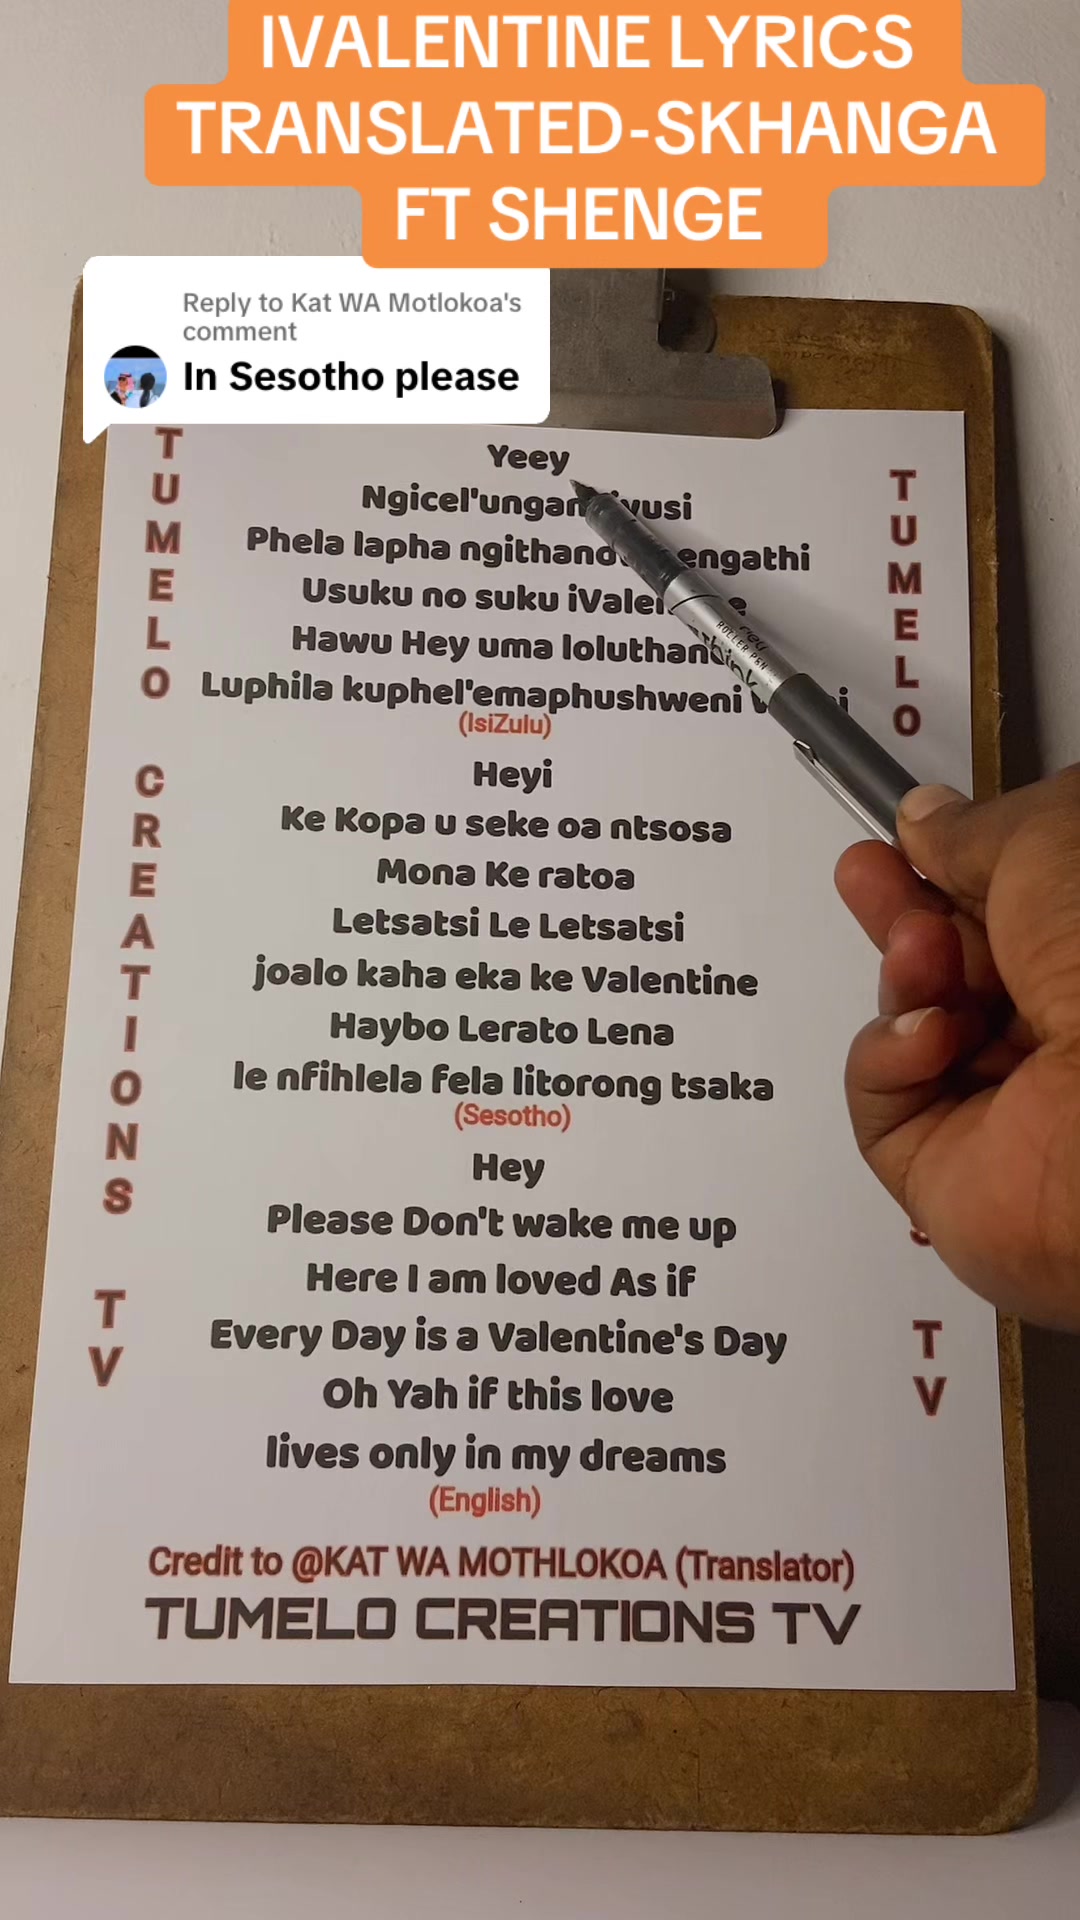 IVALENTINE LYRICS
TRANSLATED-SKHANGA
FT SHENGE
Reply to Kat WA Motlokoa's
comment
In Sesotho please
TUMELO CREATIONS TV
Yeey
Phela lapha engathi
Usuku no suku
Hawu Hey uma
Luphila kuphel'emaphushweni
(IsiZulu)
Heyi
Ke Kopa u seke oa ntsosa
Mona Ke ratoa
Letsatsi Le Letsatsi
joalo kaha eka ke Valentine
Haybo Lerato Lena
le nfihlela fela litorong tsaka
(Sesotho)
Hey
Please Don't wake me up
Here I am loved As if
Every Day is a Valentine's Day
Oh Yah if this love
lives only in my dreams
(English)
Credit to @KAT WA MOTHLOKOA (Translator)
TUMELO CREATIONS TV
TUMELO
TV
ROLLER PEN